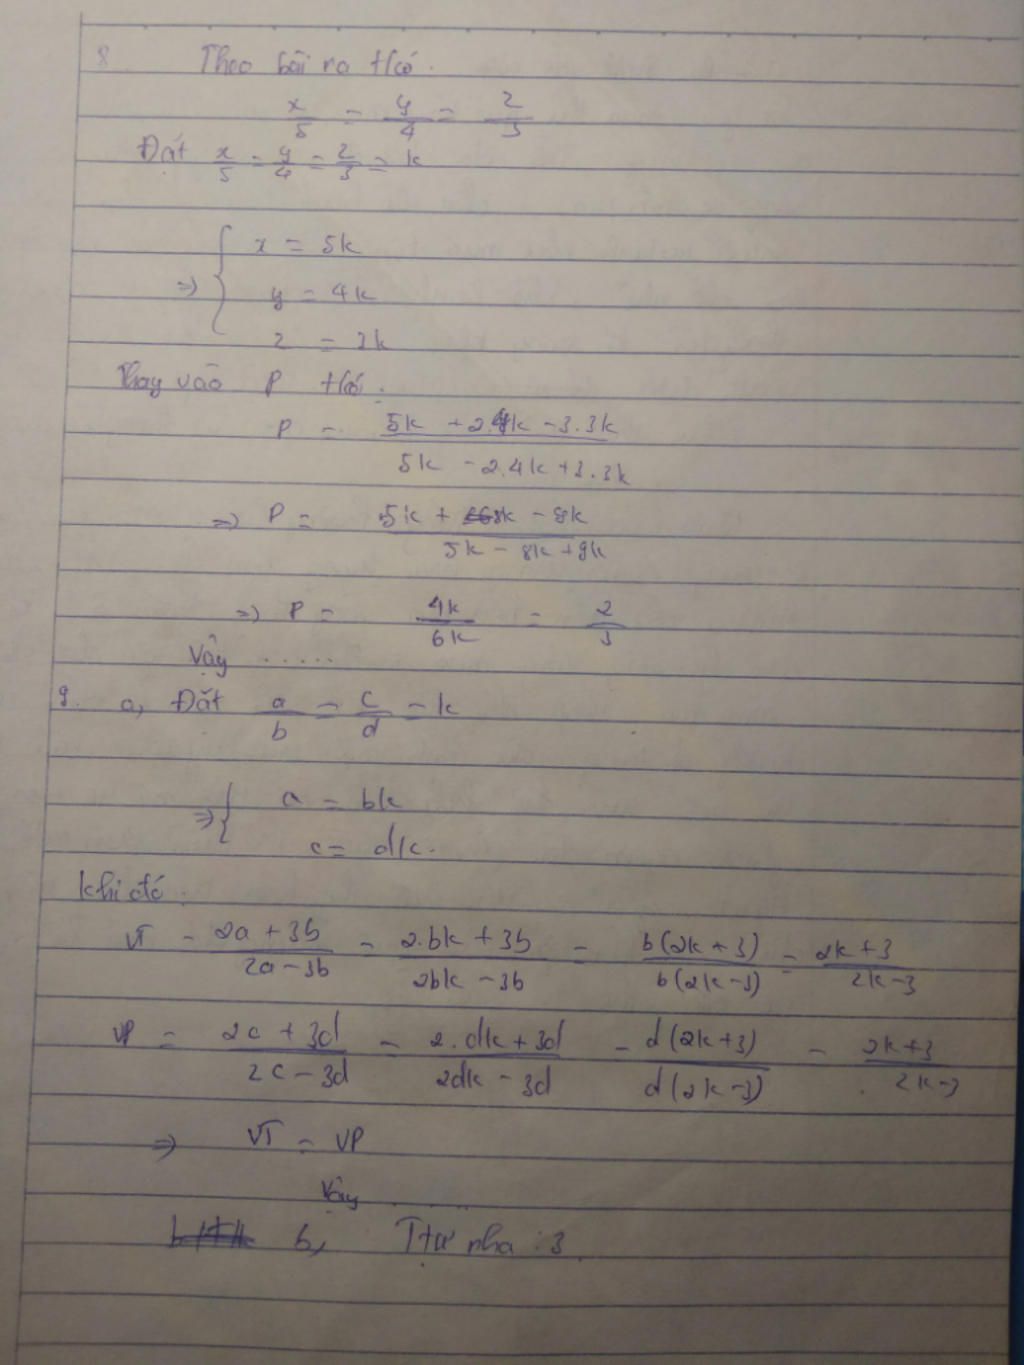 8 Theo bài ra t/có.
x/5 = y/4 = z/3
Đặt x/5 = y/4 = z/3 = k
=> { x = 5k
y = 4k
z = 3k
Thay vào P t/có:
P = (5k + 2.4k - 3.3k)/(5k - 2.4k + 3.3k)
=> P = (5k + 8k - 9k)/(5k - 8k + 9k)
=> P = 4k/6k = 2/3
Vậy .....
9. a, Đặt a/b = c/d = k
=> { a = bk
c = dk.
Khi đó:
VT = (2a + 3b)/(2a - 3b) = (2.bk + 3b)/(2bk - 3b) = b(2k + 3)/b(2k - 3) = (2k + 3)/(2k - 3)
VP = (2c + 3d)/(2c - 3d) = (2.dk + 3d)/(2dk - 3d) = d(2k + 3)/d(2k - 3) = (2k + 3)/(2k - 3)
=> VT = VP
Vậy .....
b, Ttự nha :3